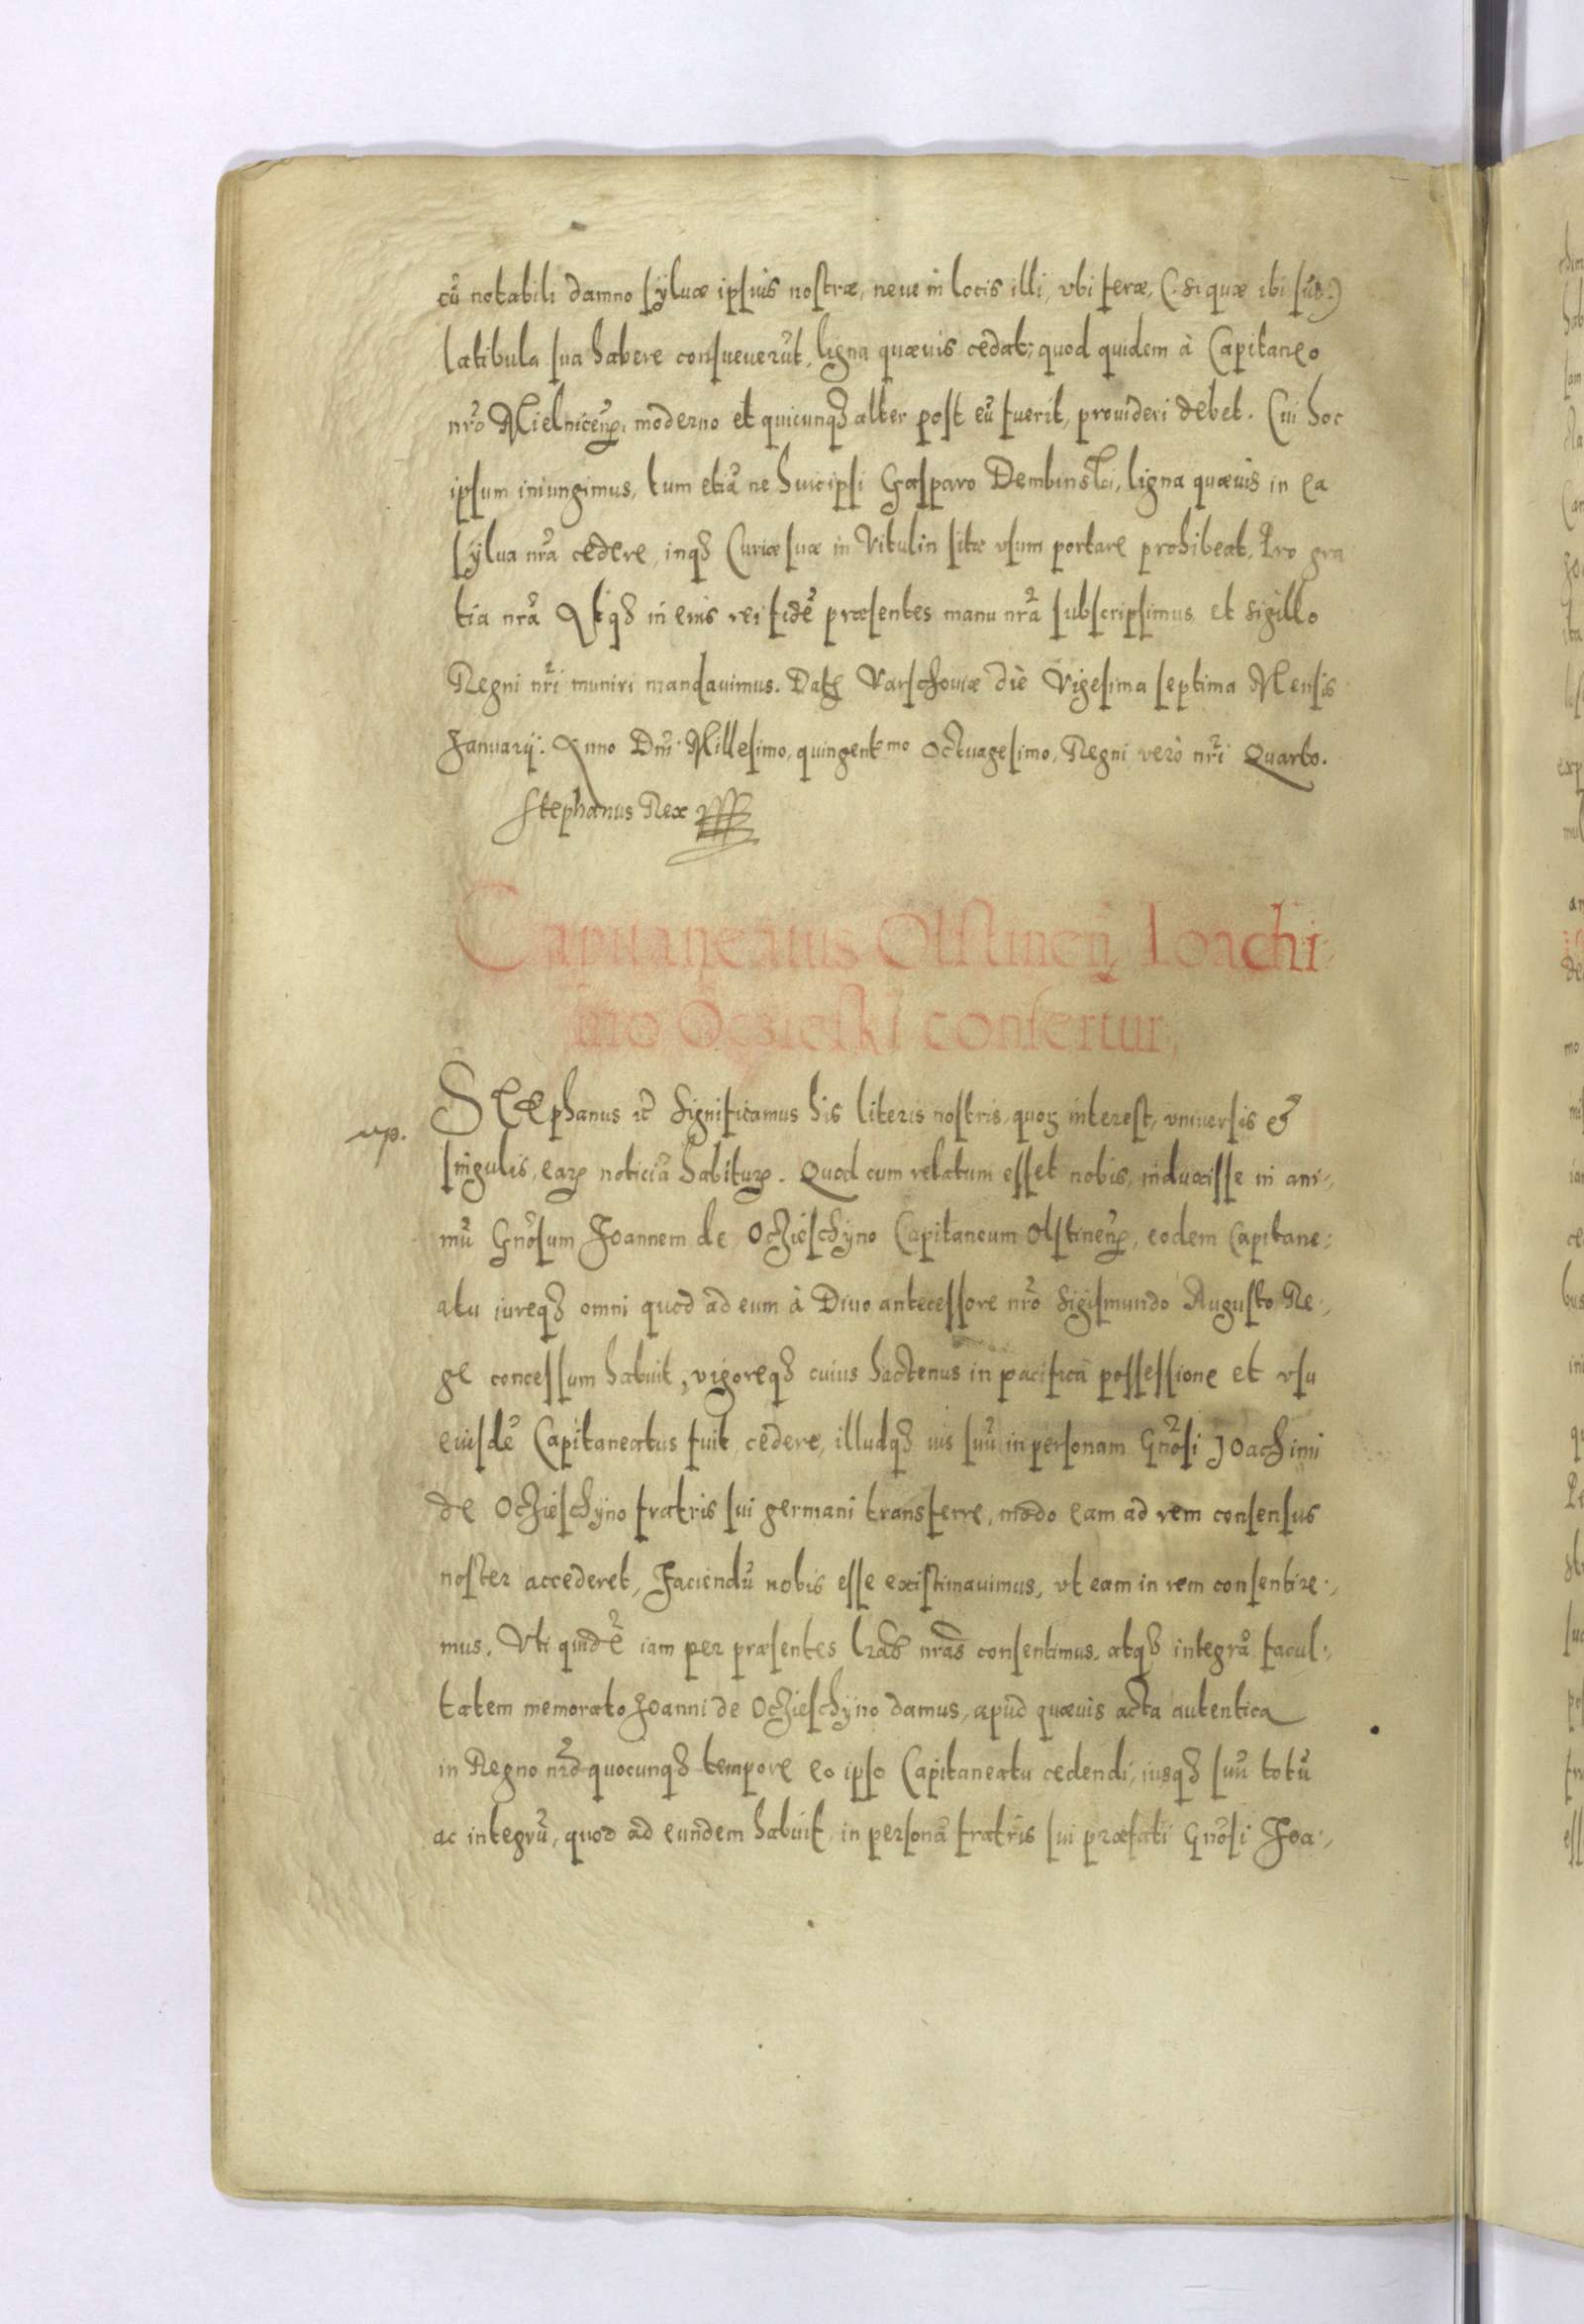 cũ notabili damno sÿluæ ipsius nostræ, neue in locis illi, vbi feræ, (: si quæ ibi sũt :)
latibula sua habere consueuerũt, ligna quæuis cedat; quod quidem à Capitaneo
nr̃o Mielniceñ, moderno et quicunq3 alter post eũ fuerit, prouideri debet. Cui hoc
ipsum iniungimus, tum etiã ne huic ipsi Gasparo Dembinski, ligna quæuis in ea
sÿlua nr̃a cedere, inq3 Curiæ suæ in Vitulin sitæ vsum portare prohibeat, Pro gra
tia nr̃a In cuius rei fidẽ præsentes manu nr̃a subscripsimus, et sigillo
Regni nr̃i muniri mandauimus. Datt Varschouiæ die Vigesima septima Mensis
Januarij. Anno Dñi Millesimo, quingent.mo Octuagesimo, Regni verò nr̃i Quarto.
Stephanus Rex
Capitaneatus Olstineñ Ioachi
mo Oczieski confertur,
np.
Stephanus etc̃ Significamus his literis nostris, quor. interest, vniuersis et
singulis, ear. noticiã habitur. Quod cum relatum esset nobis, induxisse in ani-,
mũ Gñosum Joannem de Oczieschÿno Capitaneum Olstineñ, eodem Capitane:
atu iureq3 omni quod ad eum à Diuo antecessore nr̃o Sigismundo Augusto Re-,
ge concessum habuit, vigoreq3 cuius hactenus in pacifica possessione et vsu
eiusdẽ Capitaneatus fuit, cedere, illudq3 ius suũ in personam Gñosi Joachimi
de Oczieschÿno fratris sui germani transferre, modo eam ad rem consensus
noster accederet, Faciendũ nobis esse existimauimus, vt eam in rem consentire-,
mus. Vti quidẽ iam per præsentes lr̃as nr̃as consentimus, atq3 integrã facul-,
tatem memorato Joanni de Oczieschÿno damus, apud quæuis acta autentica
in Regno nr̃o quocunq3 tempore eo ipso Capitaneatu cedendi, iusq3 suũ totũ
ac integrũ, quod ad eundem habuit, in personã fratris sui præfati Gñosi Joa-,